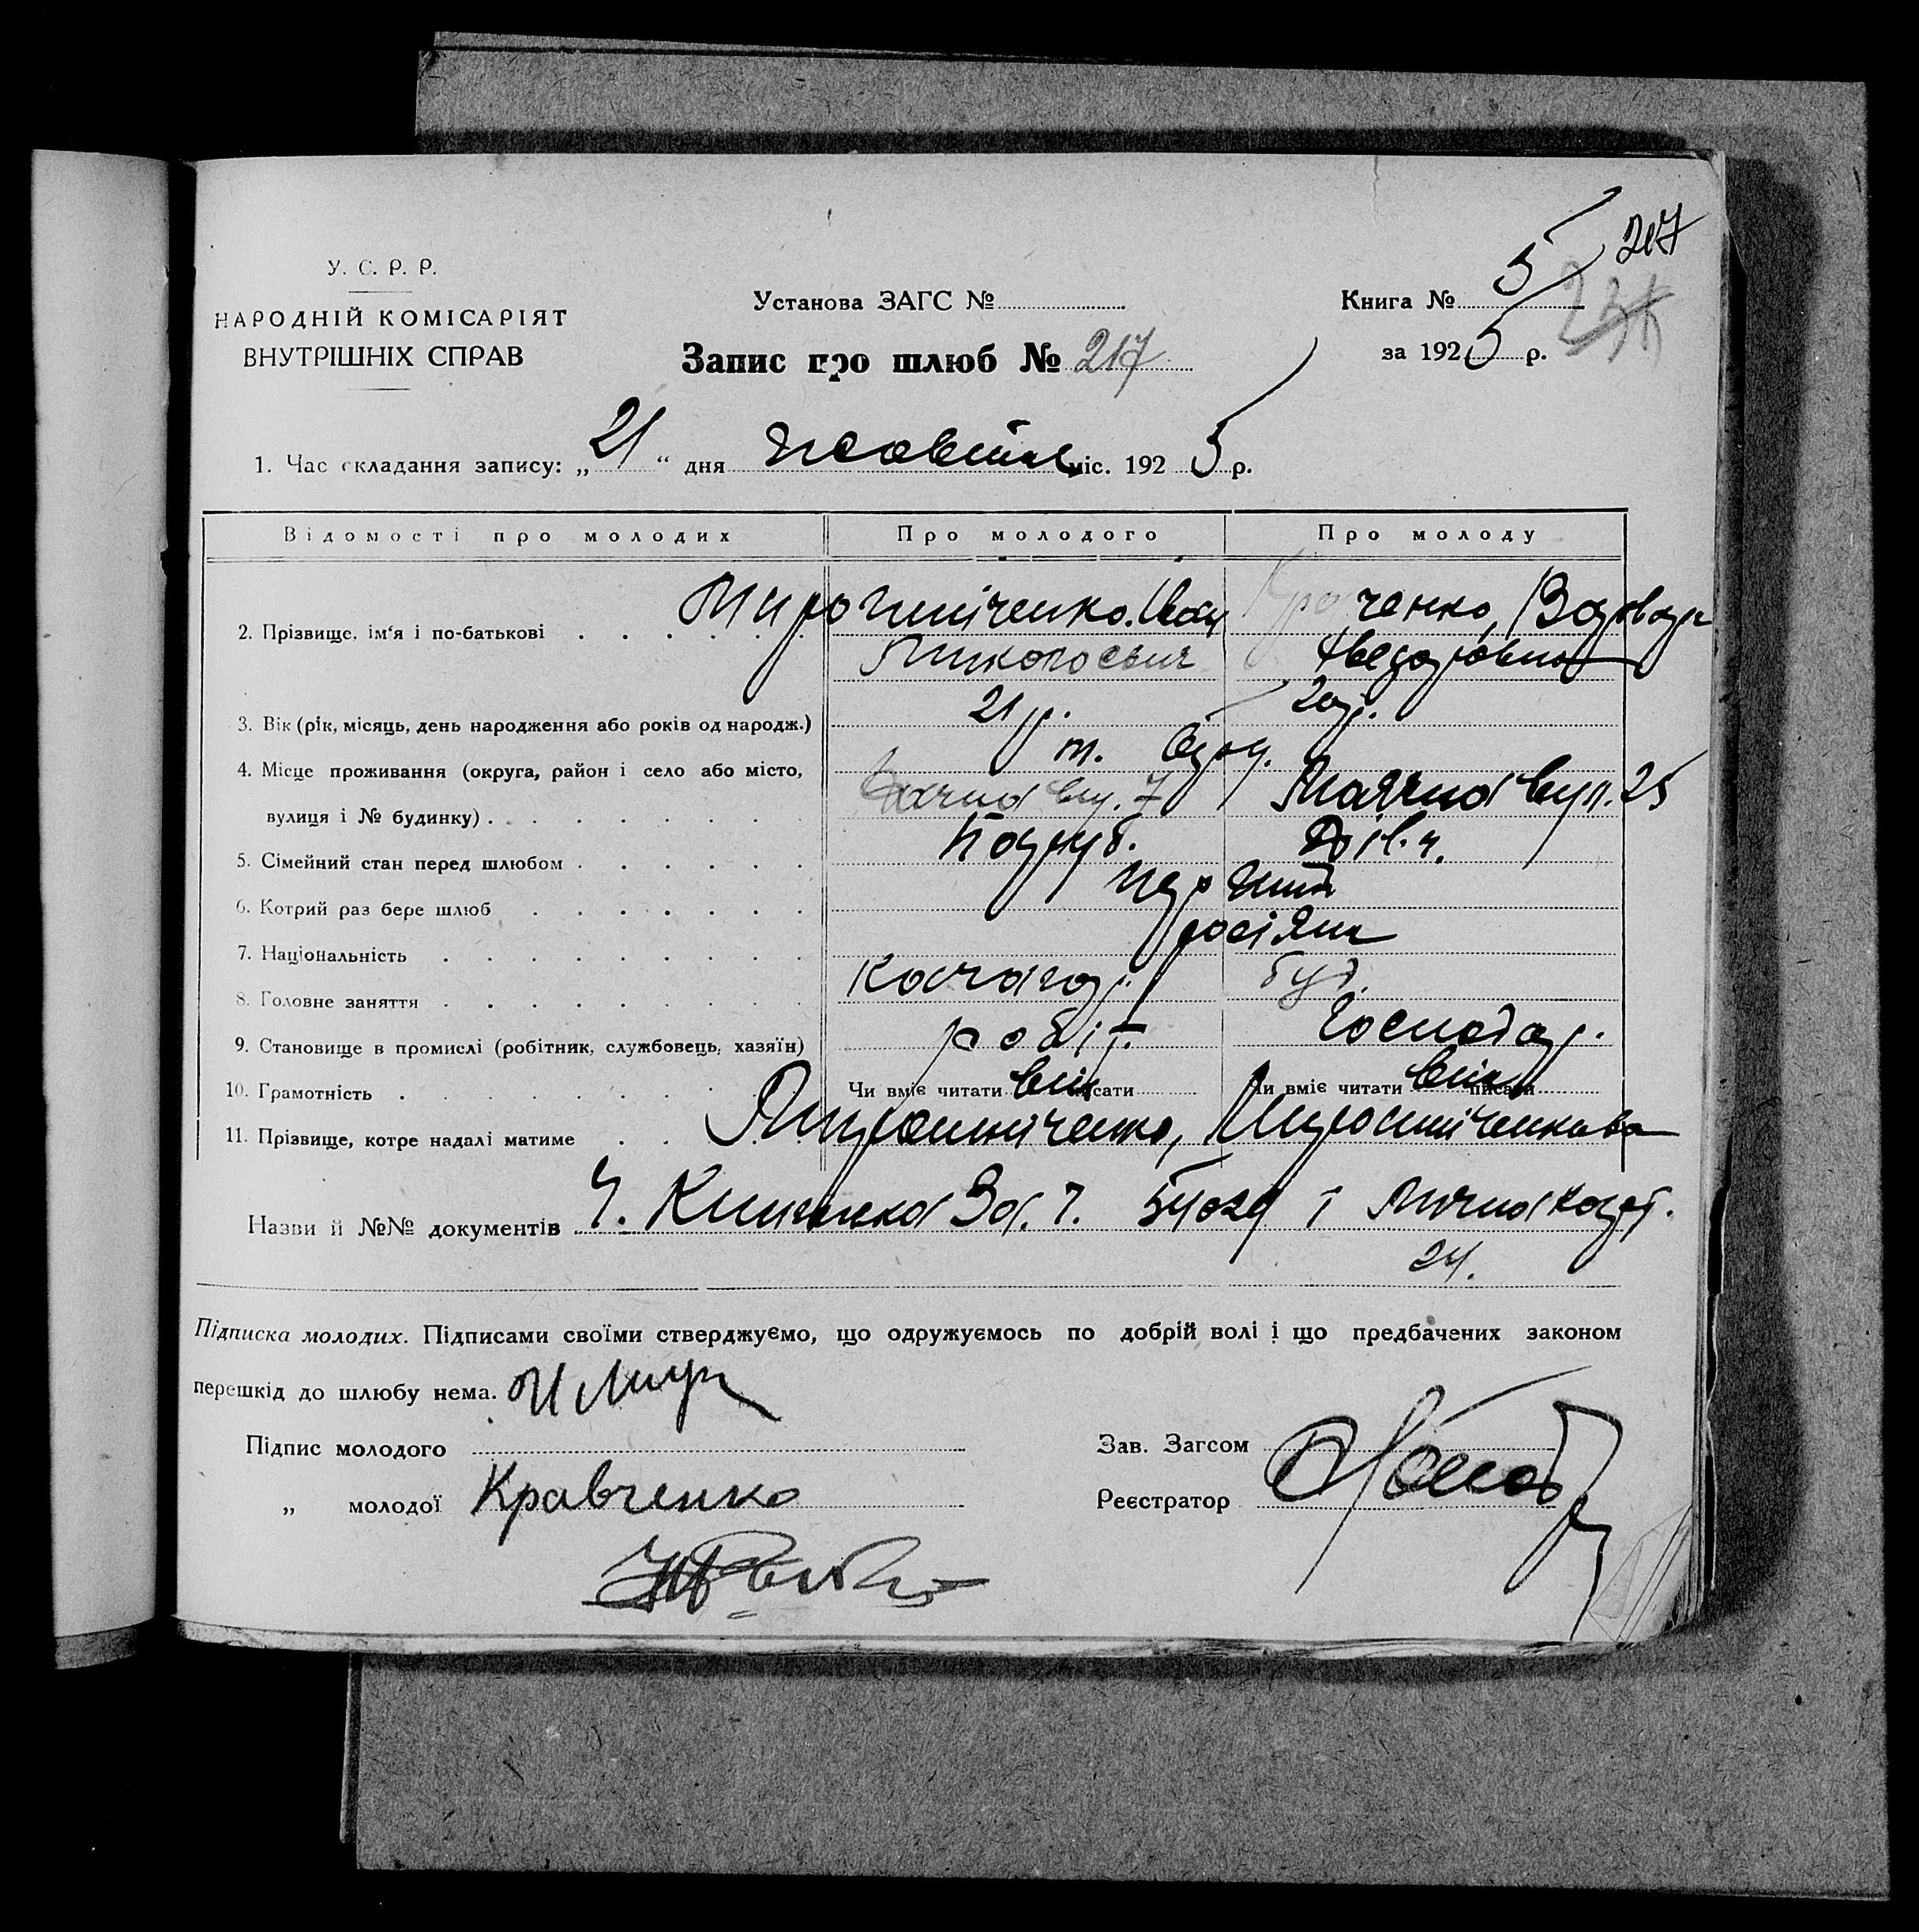 217
У. С. Р. Р.
НАРОДНІЙ КОМІСАРІЯТ
ВНУТРІШНІХ СПРАВ
Установа ЗАГС №
Книга № 5
Запис про шлюб № 217
за 1925 р.
1. Час складання запису: „21“ дня жовтня міс. 1925 р.
Відомості про молодих Про молодого Про молоду
2. Прізвище, ім‘я і по-батькові Мирошніченко Іван ченко, Варвара
Миколаевич Хведоровна
3. Вік (рік, місяць, день народження або років од народж.) 21 р. 20 р.
4. Місце проживання (округа, район і село або місто, м.
вулиця і № будинку) вул. 7 Маячна вул. 25
5. Сімейний стан перед шлюбом Паруб. Дівч.
6. Котрий раз бере шлюб перший
7. Національність росіяни
8. Головне заняття кочегар. буд.
9. Становище в промислі (робітник, службовець, хазяїн) робіт. господар.
10. Грамотність Чи вміє читати вміє писати Чи вміє читати вміє писати
11. Прізвище, котре надалі матиме Мирошніченко, Мирошніченкова
Назви й №№ документів Ч. Книжка За. 7. і Лична карт.
24.
Підписка молодих. Підписами своїми стверджуємо, що одружуємось по добрій волі і що предбачених законом
перешкід до шлюбу нема. И Мир
Підпис молодого
Зав. Загсом
„ молодої Кравченко
Реєстратор